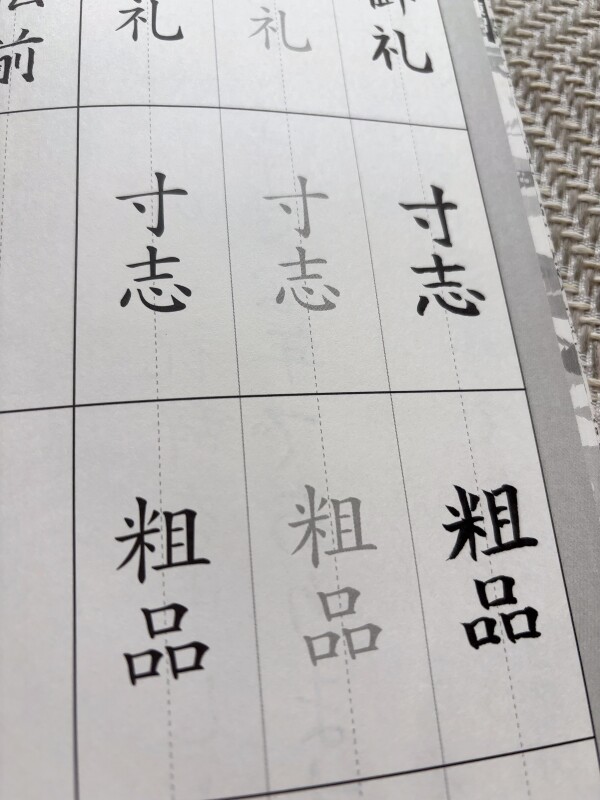 礼
礼
礼
前
寸志
寸志
寸志
粗品
粗品
粗品